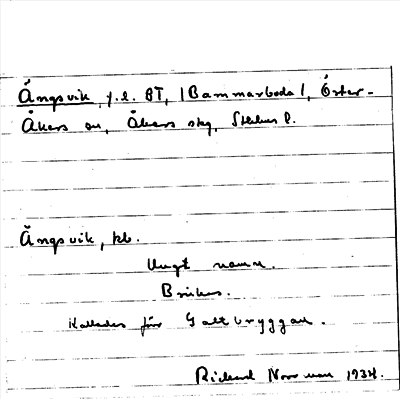 Ängsvik, f.l. BT, (Bammarboda), Öster-
Åkers sn, Åkers skg, Sthlms l.
Ängsvik, pb.
Ungt namn.
Brukas.
Kallades för Galtbryggan.
Richard Norrman 1934.